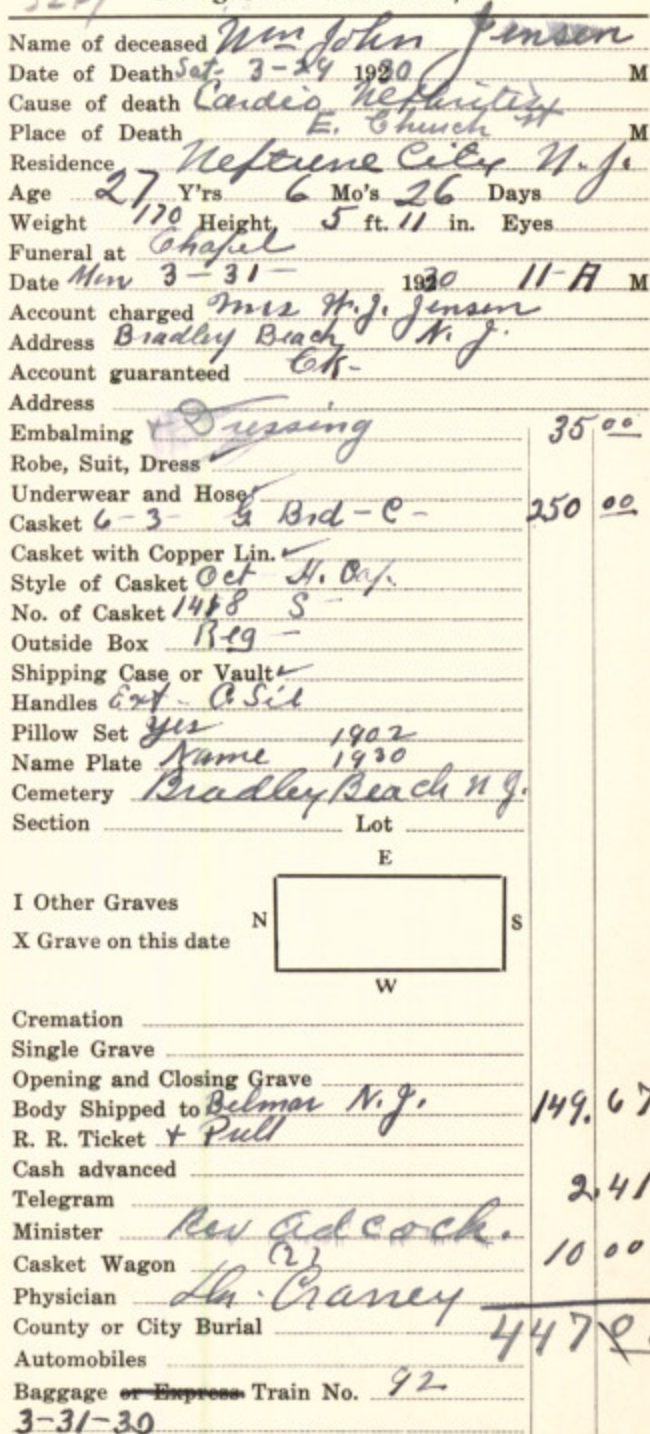 Name of deceased Wm John Jensen
Date of Death Sat- 3-29 1930 M
Cause of death Cardio Nephritis
Place of Death E. Church St M
Residence Neptune City N.J.
Age 27 Y'rs 6 Mo's 26 Days
Weight 170 Height, 5 ft. 11 in. Eyes
Funeral at Chapel
Date Mon 3-31- 1930 11-A M
Account charged Mrs W.J. Jensen
Address Bradley Beach N.J.
Account guaranteed Ck-
Address
Embalming + Dressing 35 00
Robe, Suit, Dress
Underwear and Hose
Casket 6-3 G Brd-C- 250 00
Casket with Copper Lin.
Style of Casket Oct H. Cap.
No. of Casket 1418 S-
Outside Box Reg-
Shipping Case or Vault
Handles Ext- O Sil
Pillow Set Yes 1902
Name Plate Name 1930
Cemetery Bradley Beach N.J.
Section Lot
E
I Other Graves
N S
X Grave on this date
W
Cremation
Single Grave
Opening and Closing Grave
Body Shipped to Belmar N.J. 149.67
R. R. Ticket + Pull
Cash advanced
Telegram 2.41
Minister Rev Adcock.
Casket Wagon (2) 10 00
Physician Dr. Cranney
County or City Burial 447
Automobiles
Baggage or Express Train No. 92
3-31-30